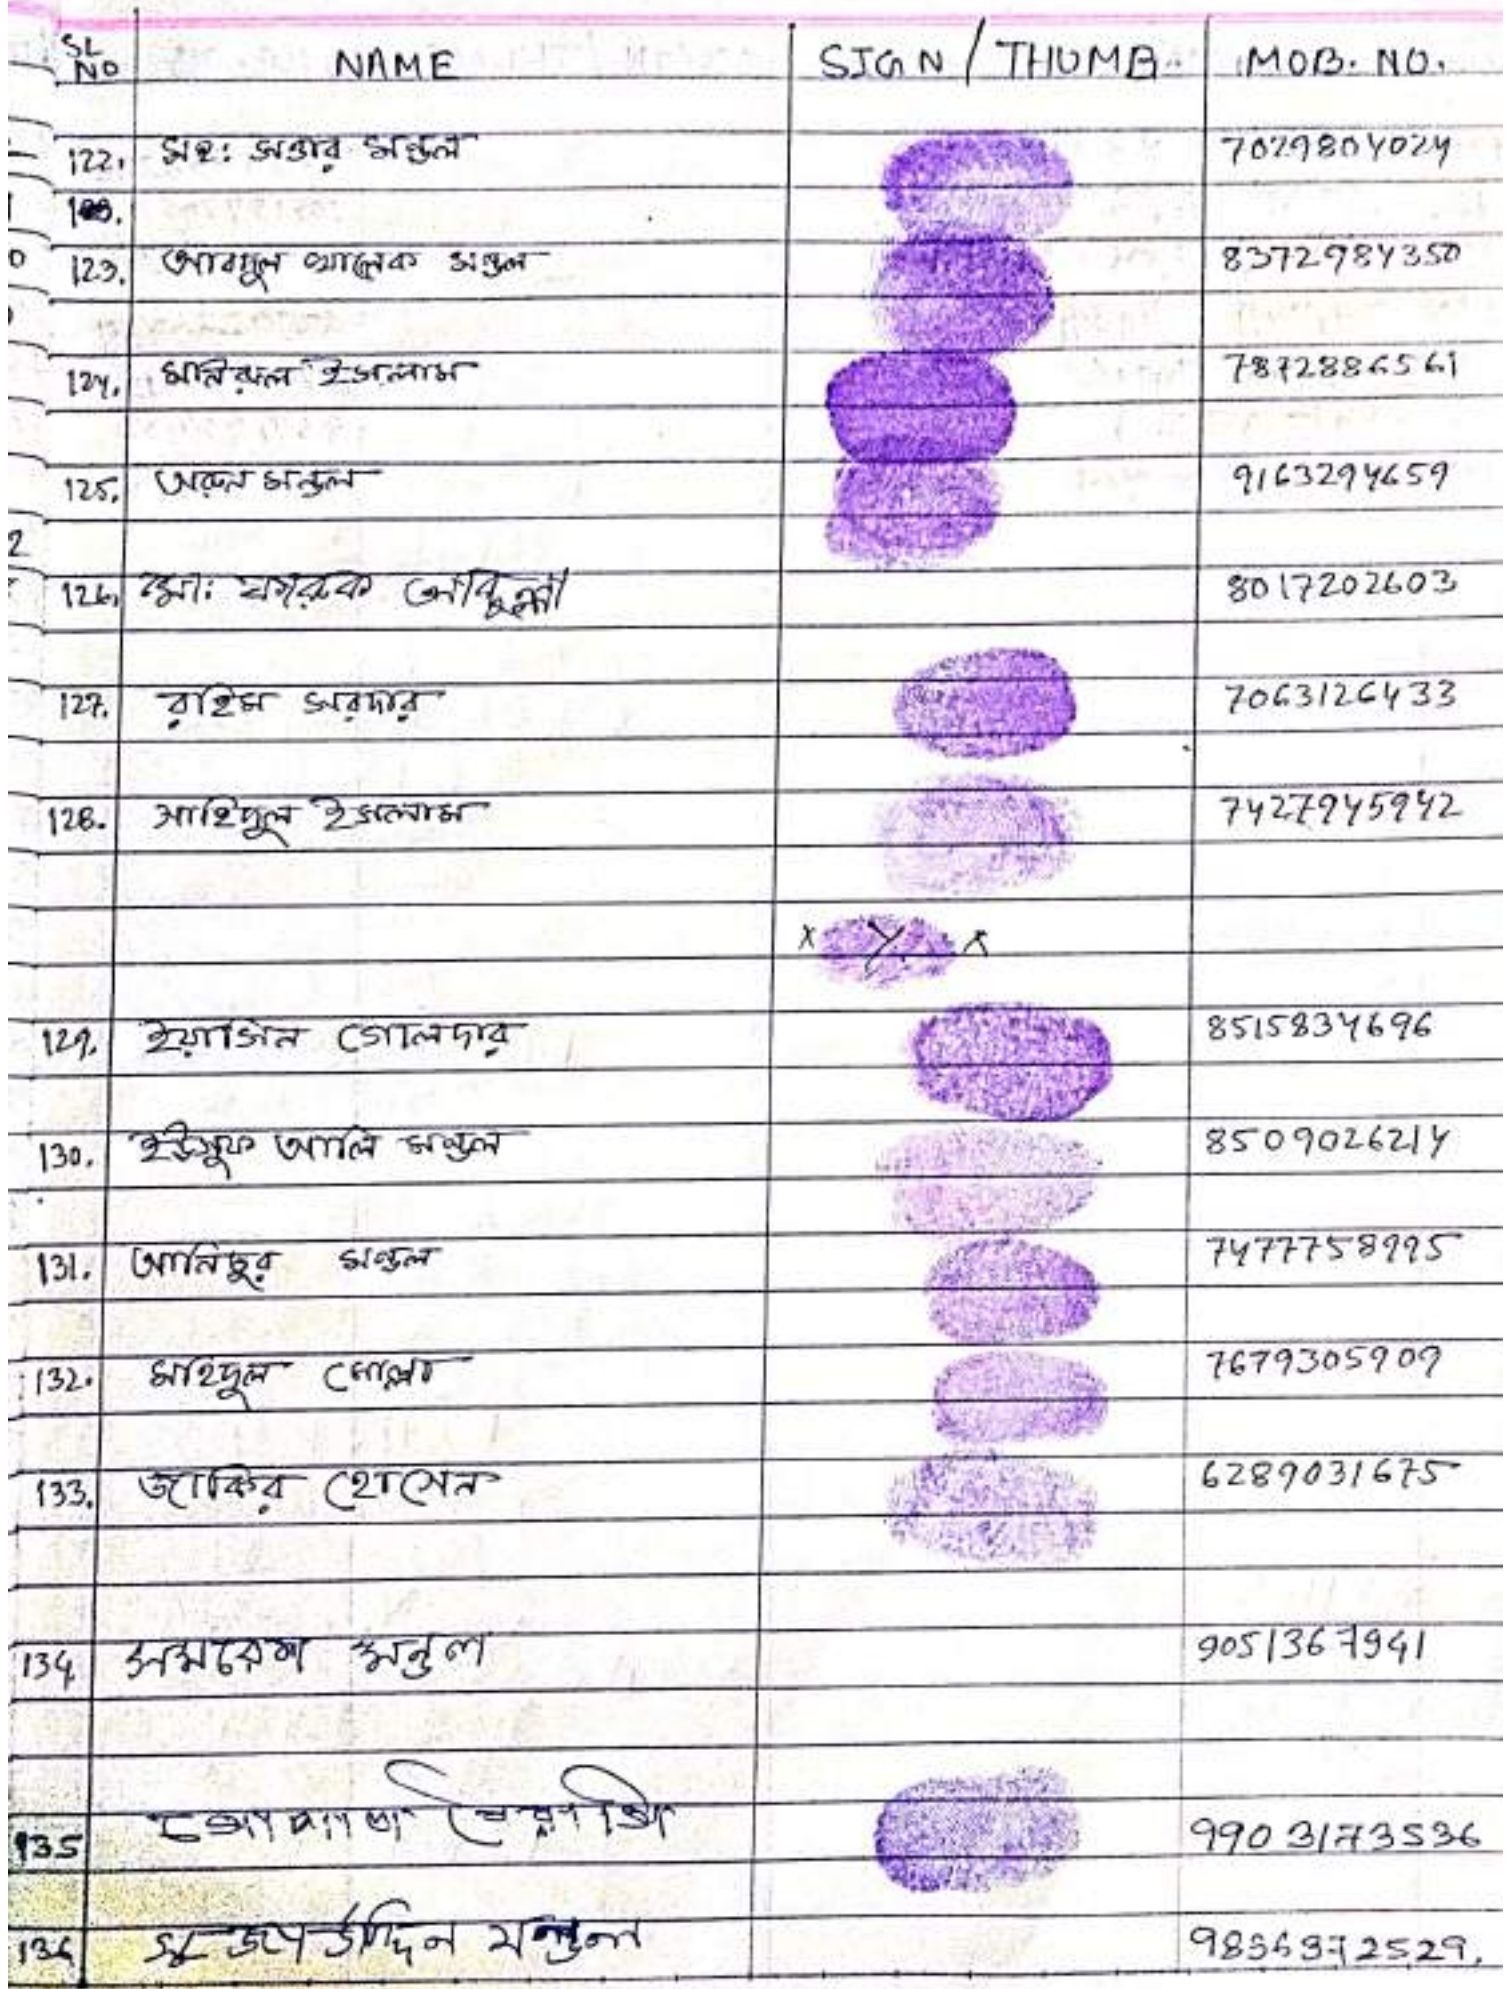 SL NO NAME SIGN / THUMB MOB. NO.
122. মহঃ সত্তার মন্ডল 7029804024
123. আবদুল খালেক মন্ডল 8372984350
124. মনিরুল ইসলাম 7872886561
125. অরুন মন্ডল 9163294659
126. মোঃ 8017202603
127. রহিম সরদার 7063126433
128. সাহিদুল ইসলাম 7427945942
x x
129. ইয়াসিন গোলদার 8515834696
130. ইউসুফ আলি মন্ডল 8509026214
131. আনিছুর মন্ডল 7477758995
132. মহিদুল মোল্লা 7679305909
133. জাকির হোসেন 6289031675
134 সমরেশ মন্ডল 9051367941
135 9903173536
136 মন্ডল 9836372529.